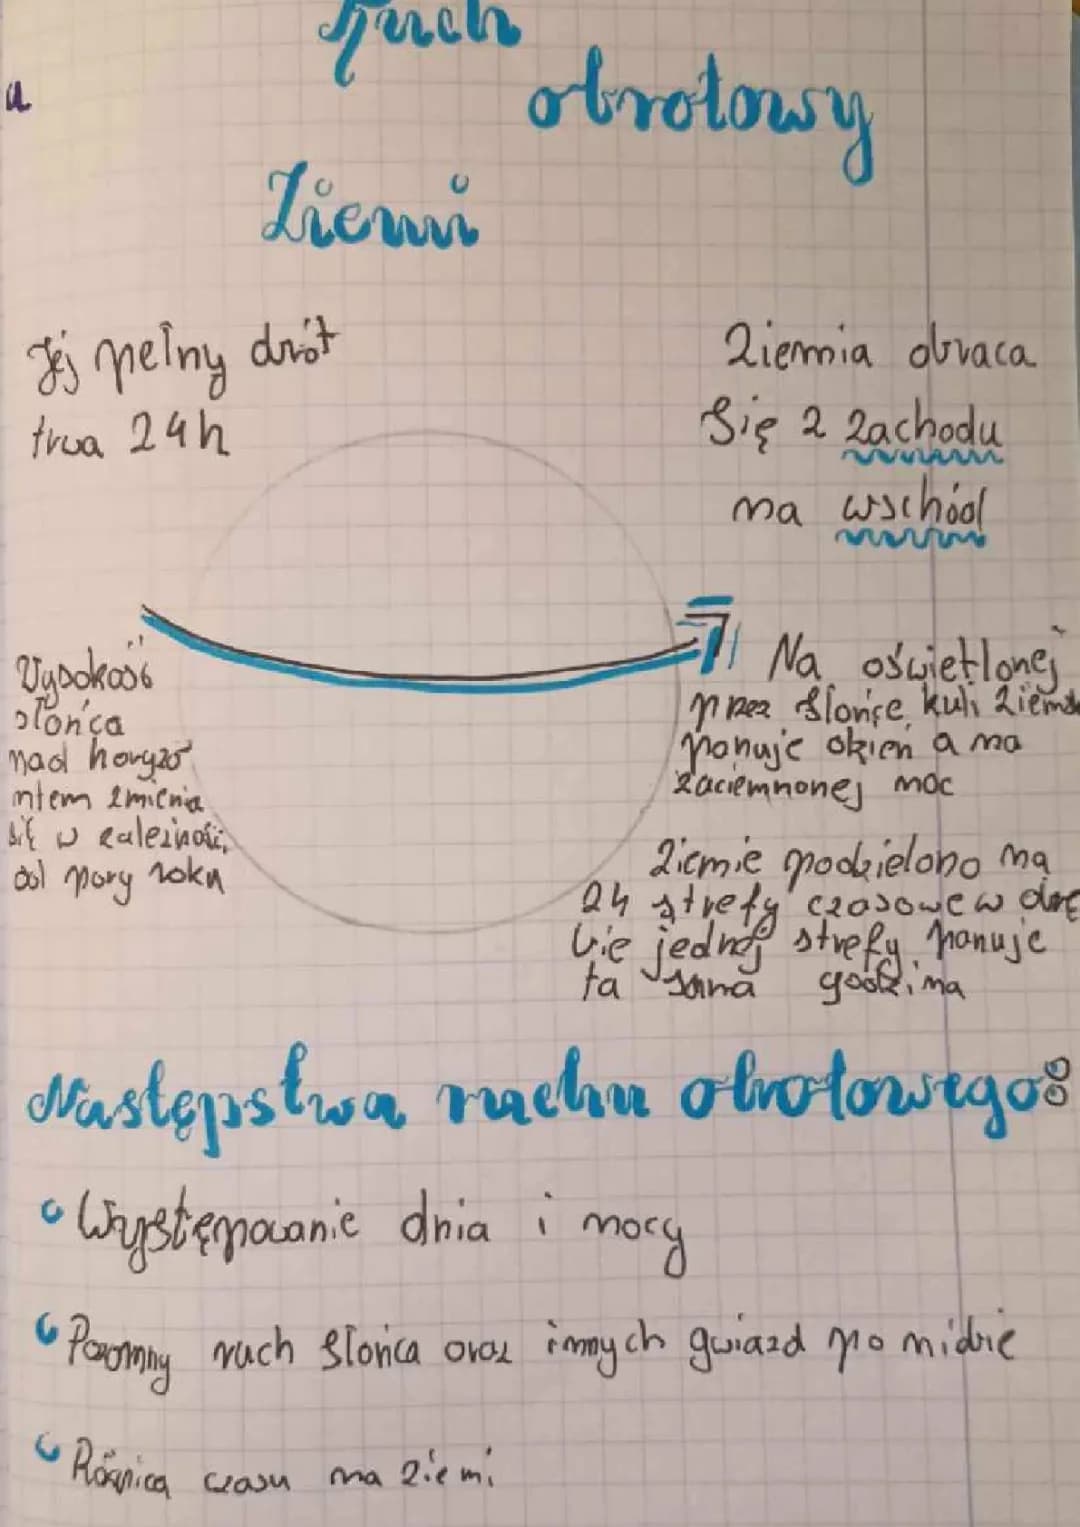 Ruch
obrotowy
Ziemi
Jej pełny obrót
trwa 24h
Ziemia obraca
się z zachodu
na wschód
Wysokość
słońca
nad horyzo
ntem zmienia
się w zależności
od pory roku
Na oświetlonej
przez słońce kuli ziemsk
panuje dzień a na
zaciemnionej noc
Ziemie podzielono na
24 strefy czasowe w obrę
bie jednej strefy panuje
ta sama godzina
Następstwa ruchu obrotowego:
Występowanie dnia i nocy
Pozorny ruch słońca oraz innych gwiazd po niebie
Różnica czasu na ziemi